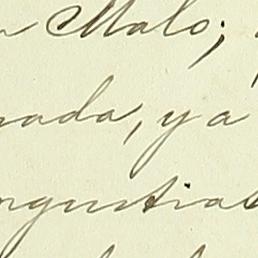 Malo;
nada, ya
ngustias